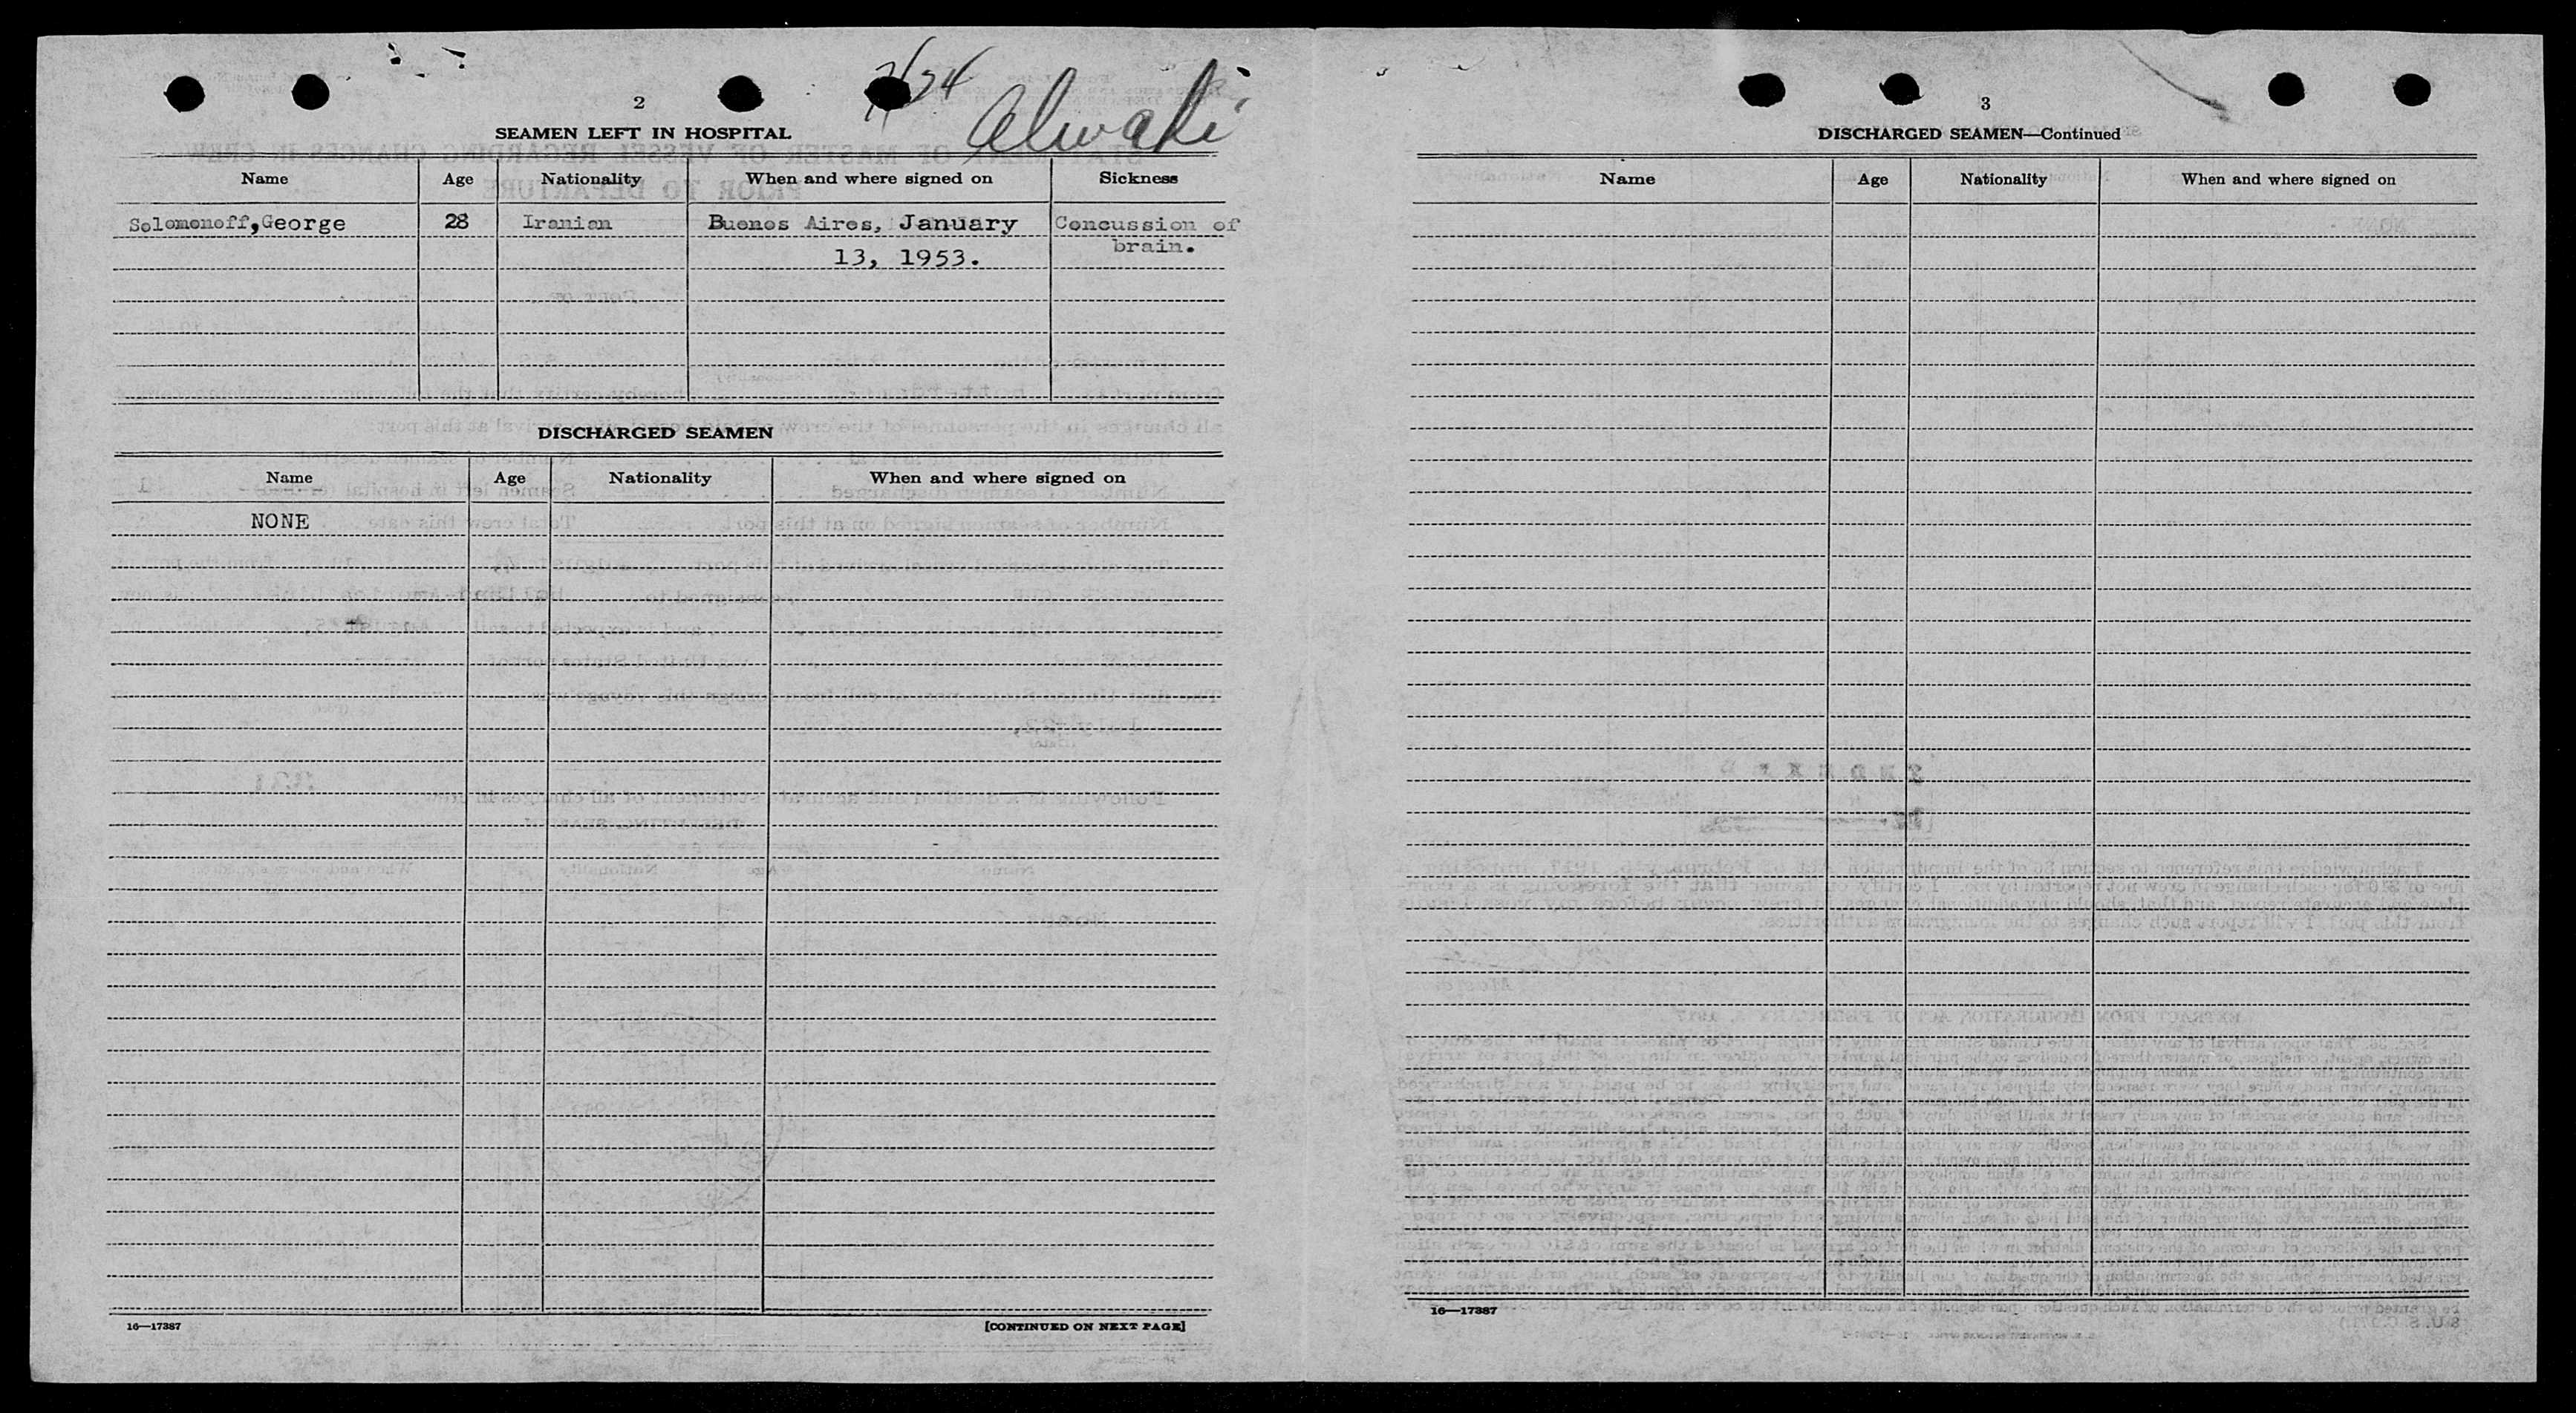 7/24
Alwaki
2
SEAMEN LEFT IN HOSPITAL
Name Age Nationality When and where signed on Sickness
Solomonoff,George 28 Iranian Buenos Aires, January Concussion of
13, 1953. brain.
DISCHARGED SEAMEN
Name Age Nationality When and where signed on
NONE
16—17387 [CONTINUED ON NEXT PAGE]
3
DISCHARGED SEAMEN—Continued
Name Age Nationality When and where signed on
16—17387